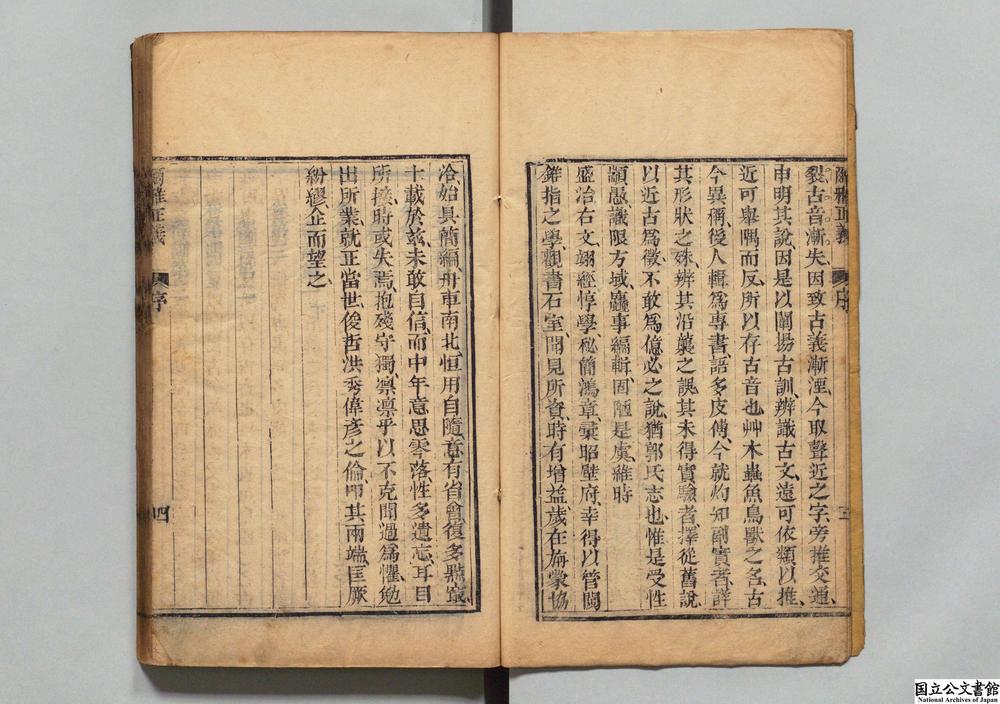 爾雅正義
序
三
裂古音漸失因致古義漸湮今取聲近之字旁推交通
申明其說因是以闡揚古訓辨識古文遠可依類以推
近可舉隅而反所以存古音也艸木蟲魚鳥獸之名古
今異稱後人輯爲專書語多皮傅今就灼知副實者詳
其形狀之殊辨其沿襲之誤其未得實驗者擇從舊說
以近古爲徵不敢爲億必之說猶郭氏志也惟是受性
顓愚識限方域麤事編輯固陋是虞維時
盛治右文翊經惇學秘簡鴻章彙昭壁府幸得以管闚
錐指之學觀書石室聞見所資時有增益歲在旃蒙協
洽始具簡編舟車南北恒用自隨意有省會復多鼎竄
十載於茲未敢自信而中年意思零落性多遺忘耳目
所接時或失焉抱殘守獨凛凛乎以不克聞過爲懼勉
出所業就正當世俊哲洪秀偉彥之倫叩其兩端匡厥
紛繆企而望之
爾雅正義
序
四
国立公文書館
National Archives of Japan